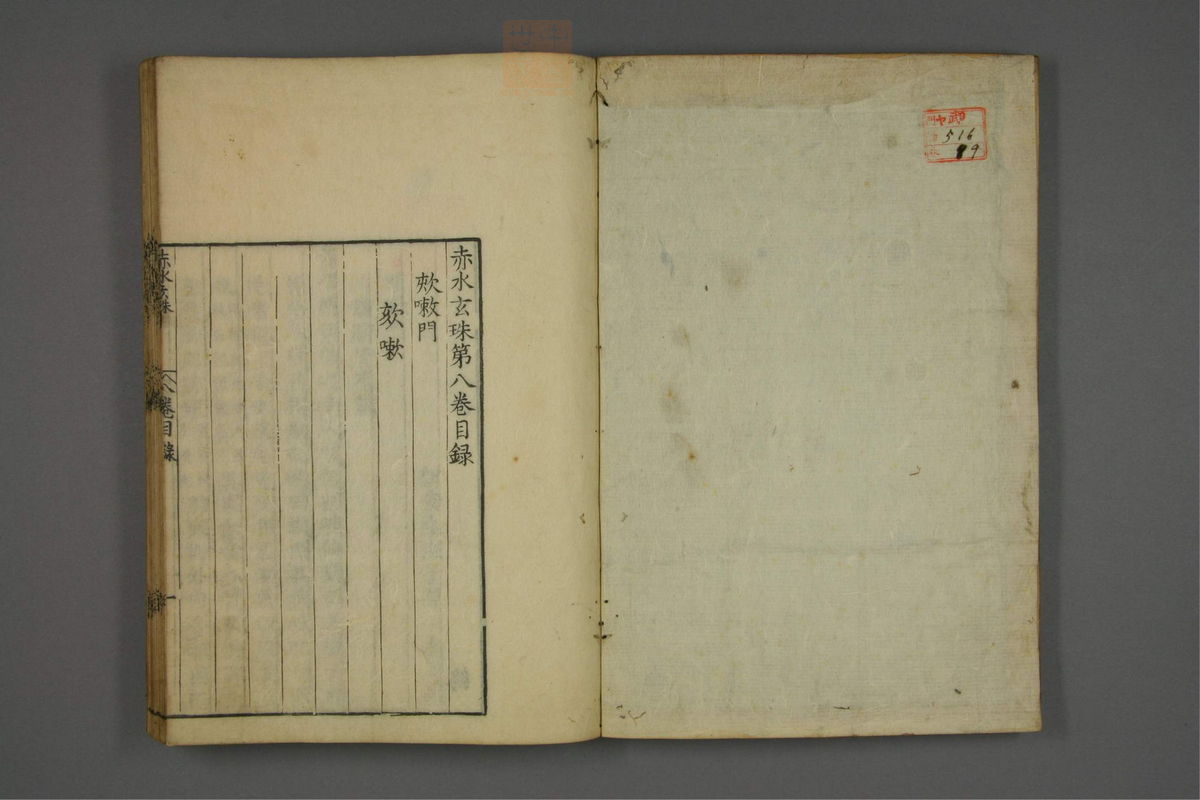 516
19
赤水玄珠第八卷目録
欬嗽門
欬嗽
赤水玄珠
八卷目錄
一